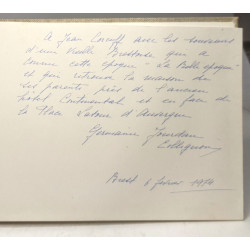 A Jean Connff avec les souvenirs
d'une vieille Brestoise qui a
connu cette époque "La Belle époque"
et qui retrouve la maison de
ses parents près de l'ancien
hôtel Continental et en face de
la Place Latour d'Auvergne
Germaine Jourdan
Brest 6 février 1974